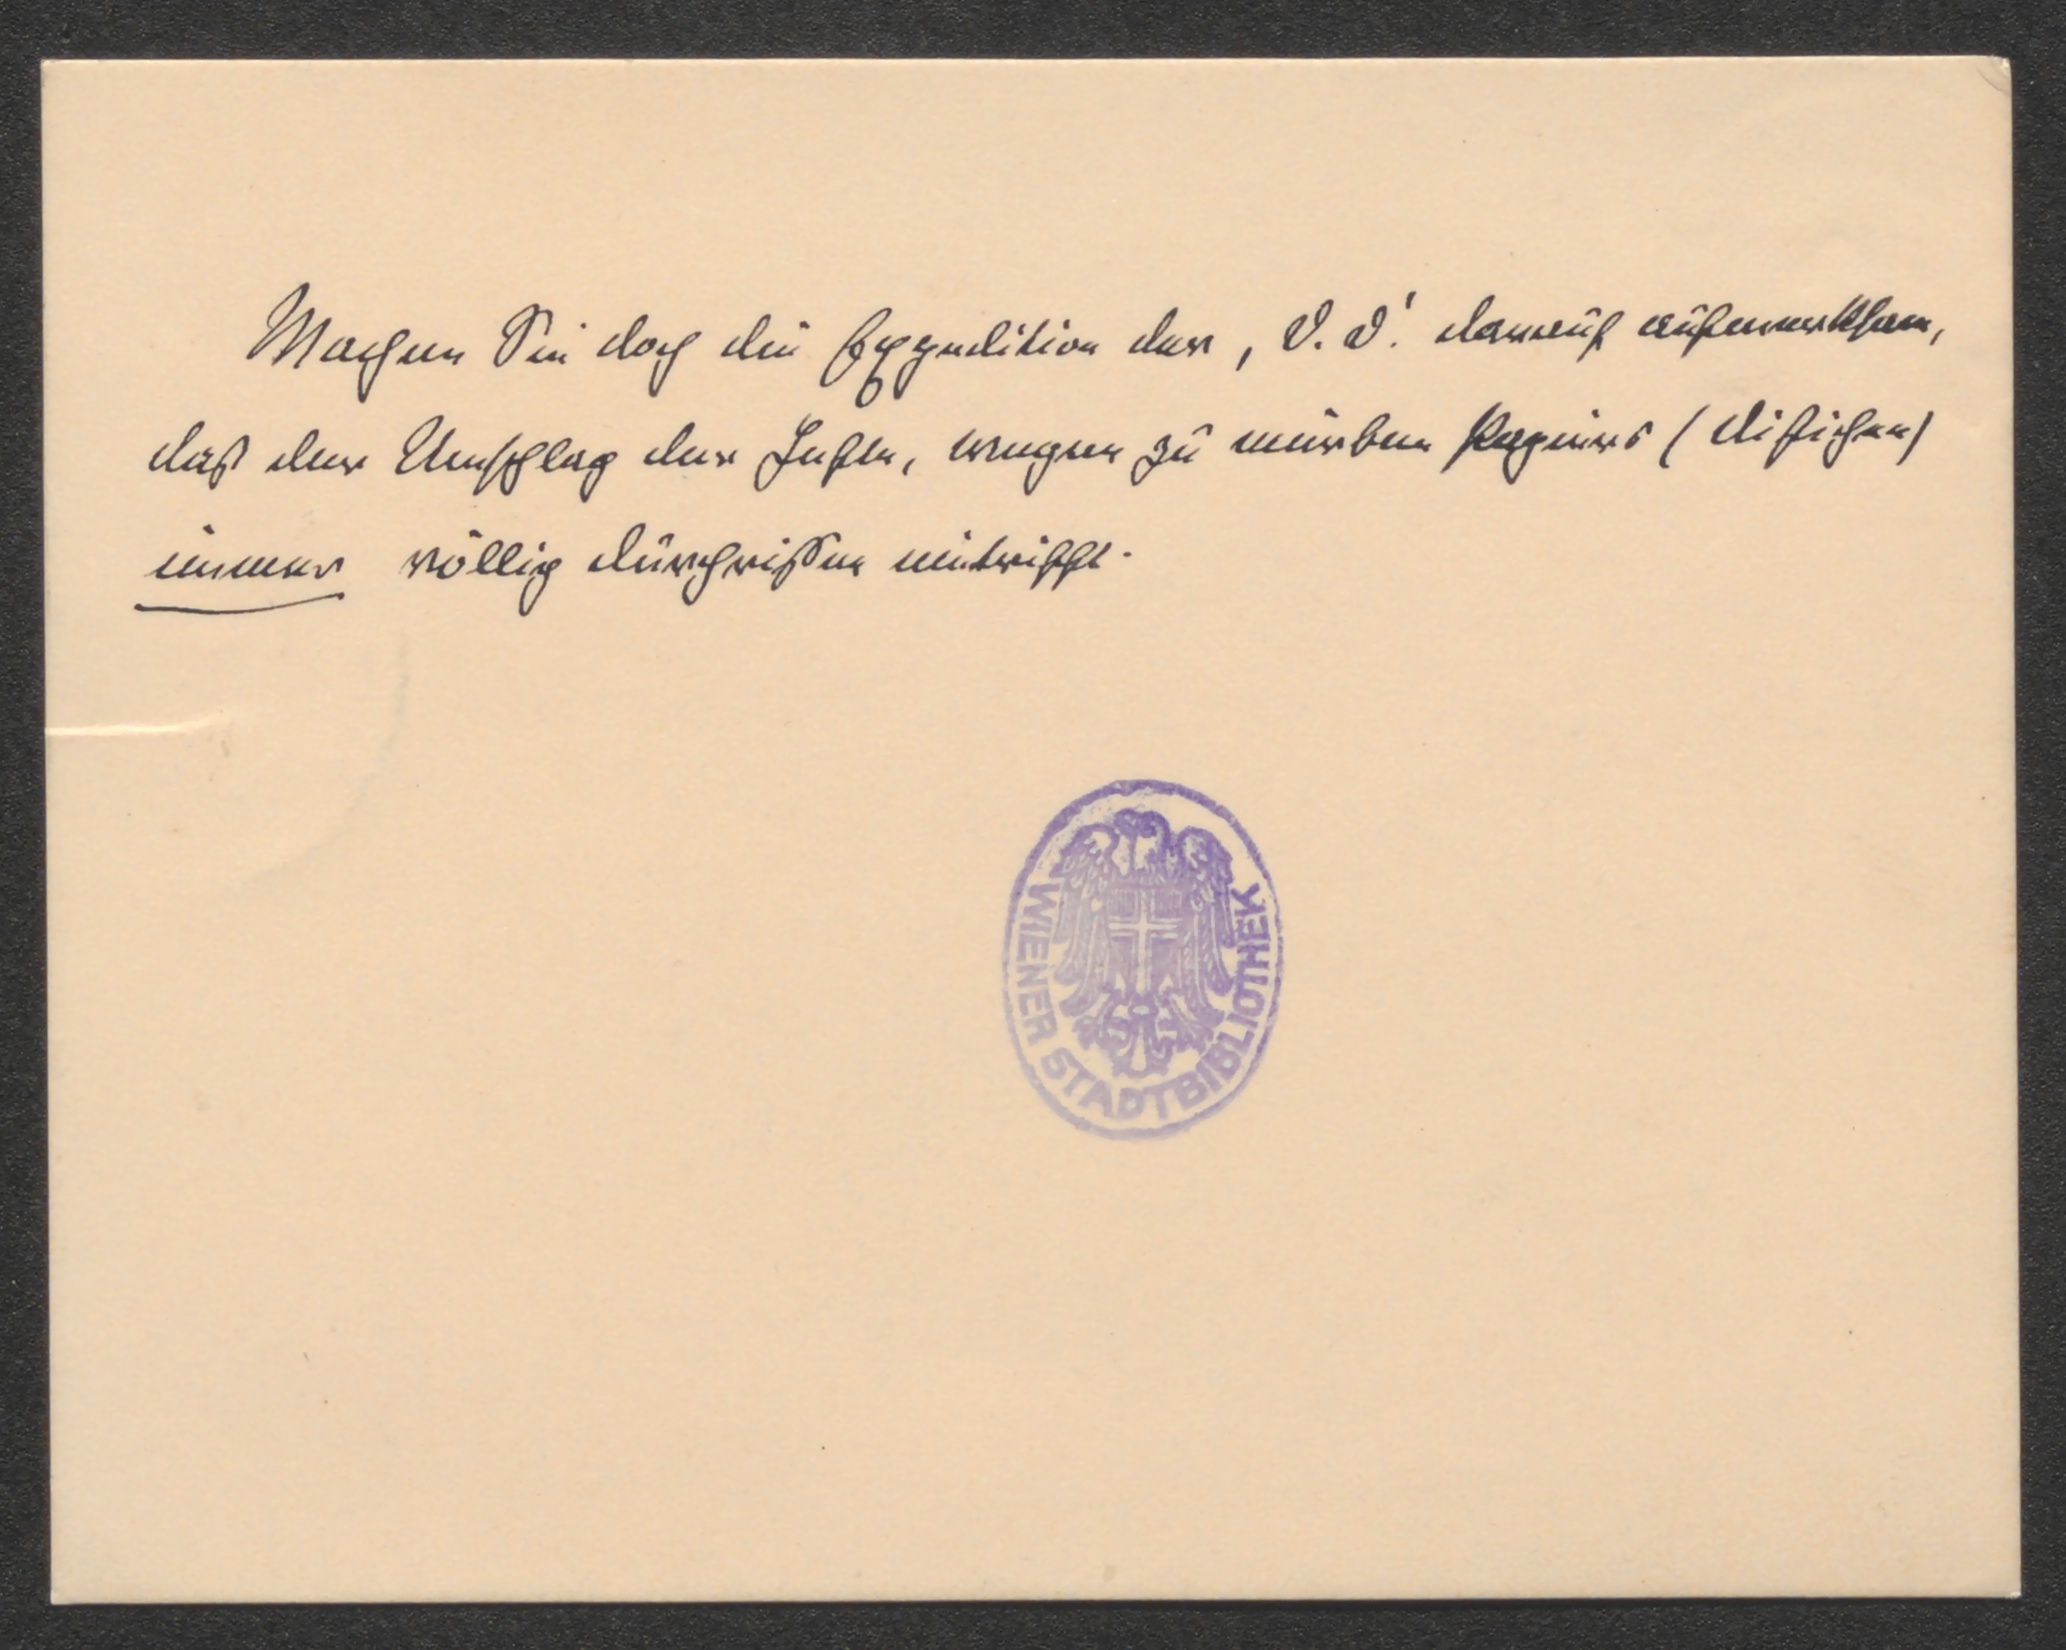 Machen Sie doch die Expedition der ‚D. D.' darauf aufmerksam,
daß der Umschlag der Hefte, wegen zu mürben Papiers
immer völlig durchrissen eintrifft.
WIENER STADTBIBLIOTHEK